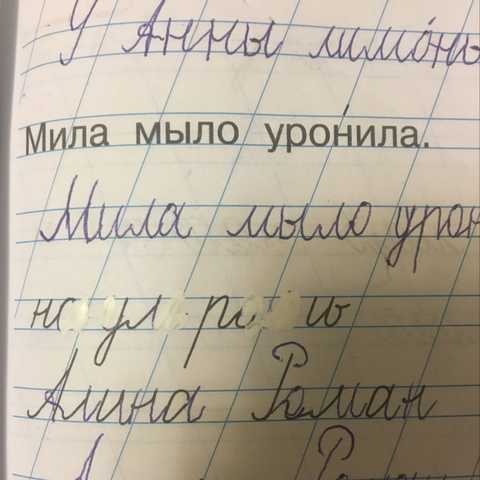 У Анны лимоны
Мила мыло уронила.
Мила мыло урон
но ул ри ы
Алина Роман